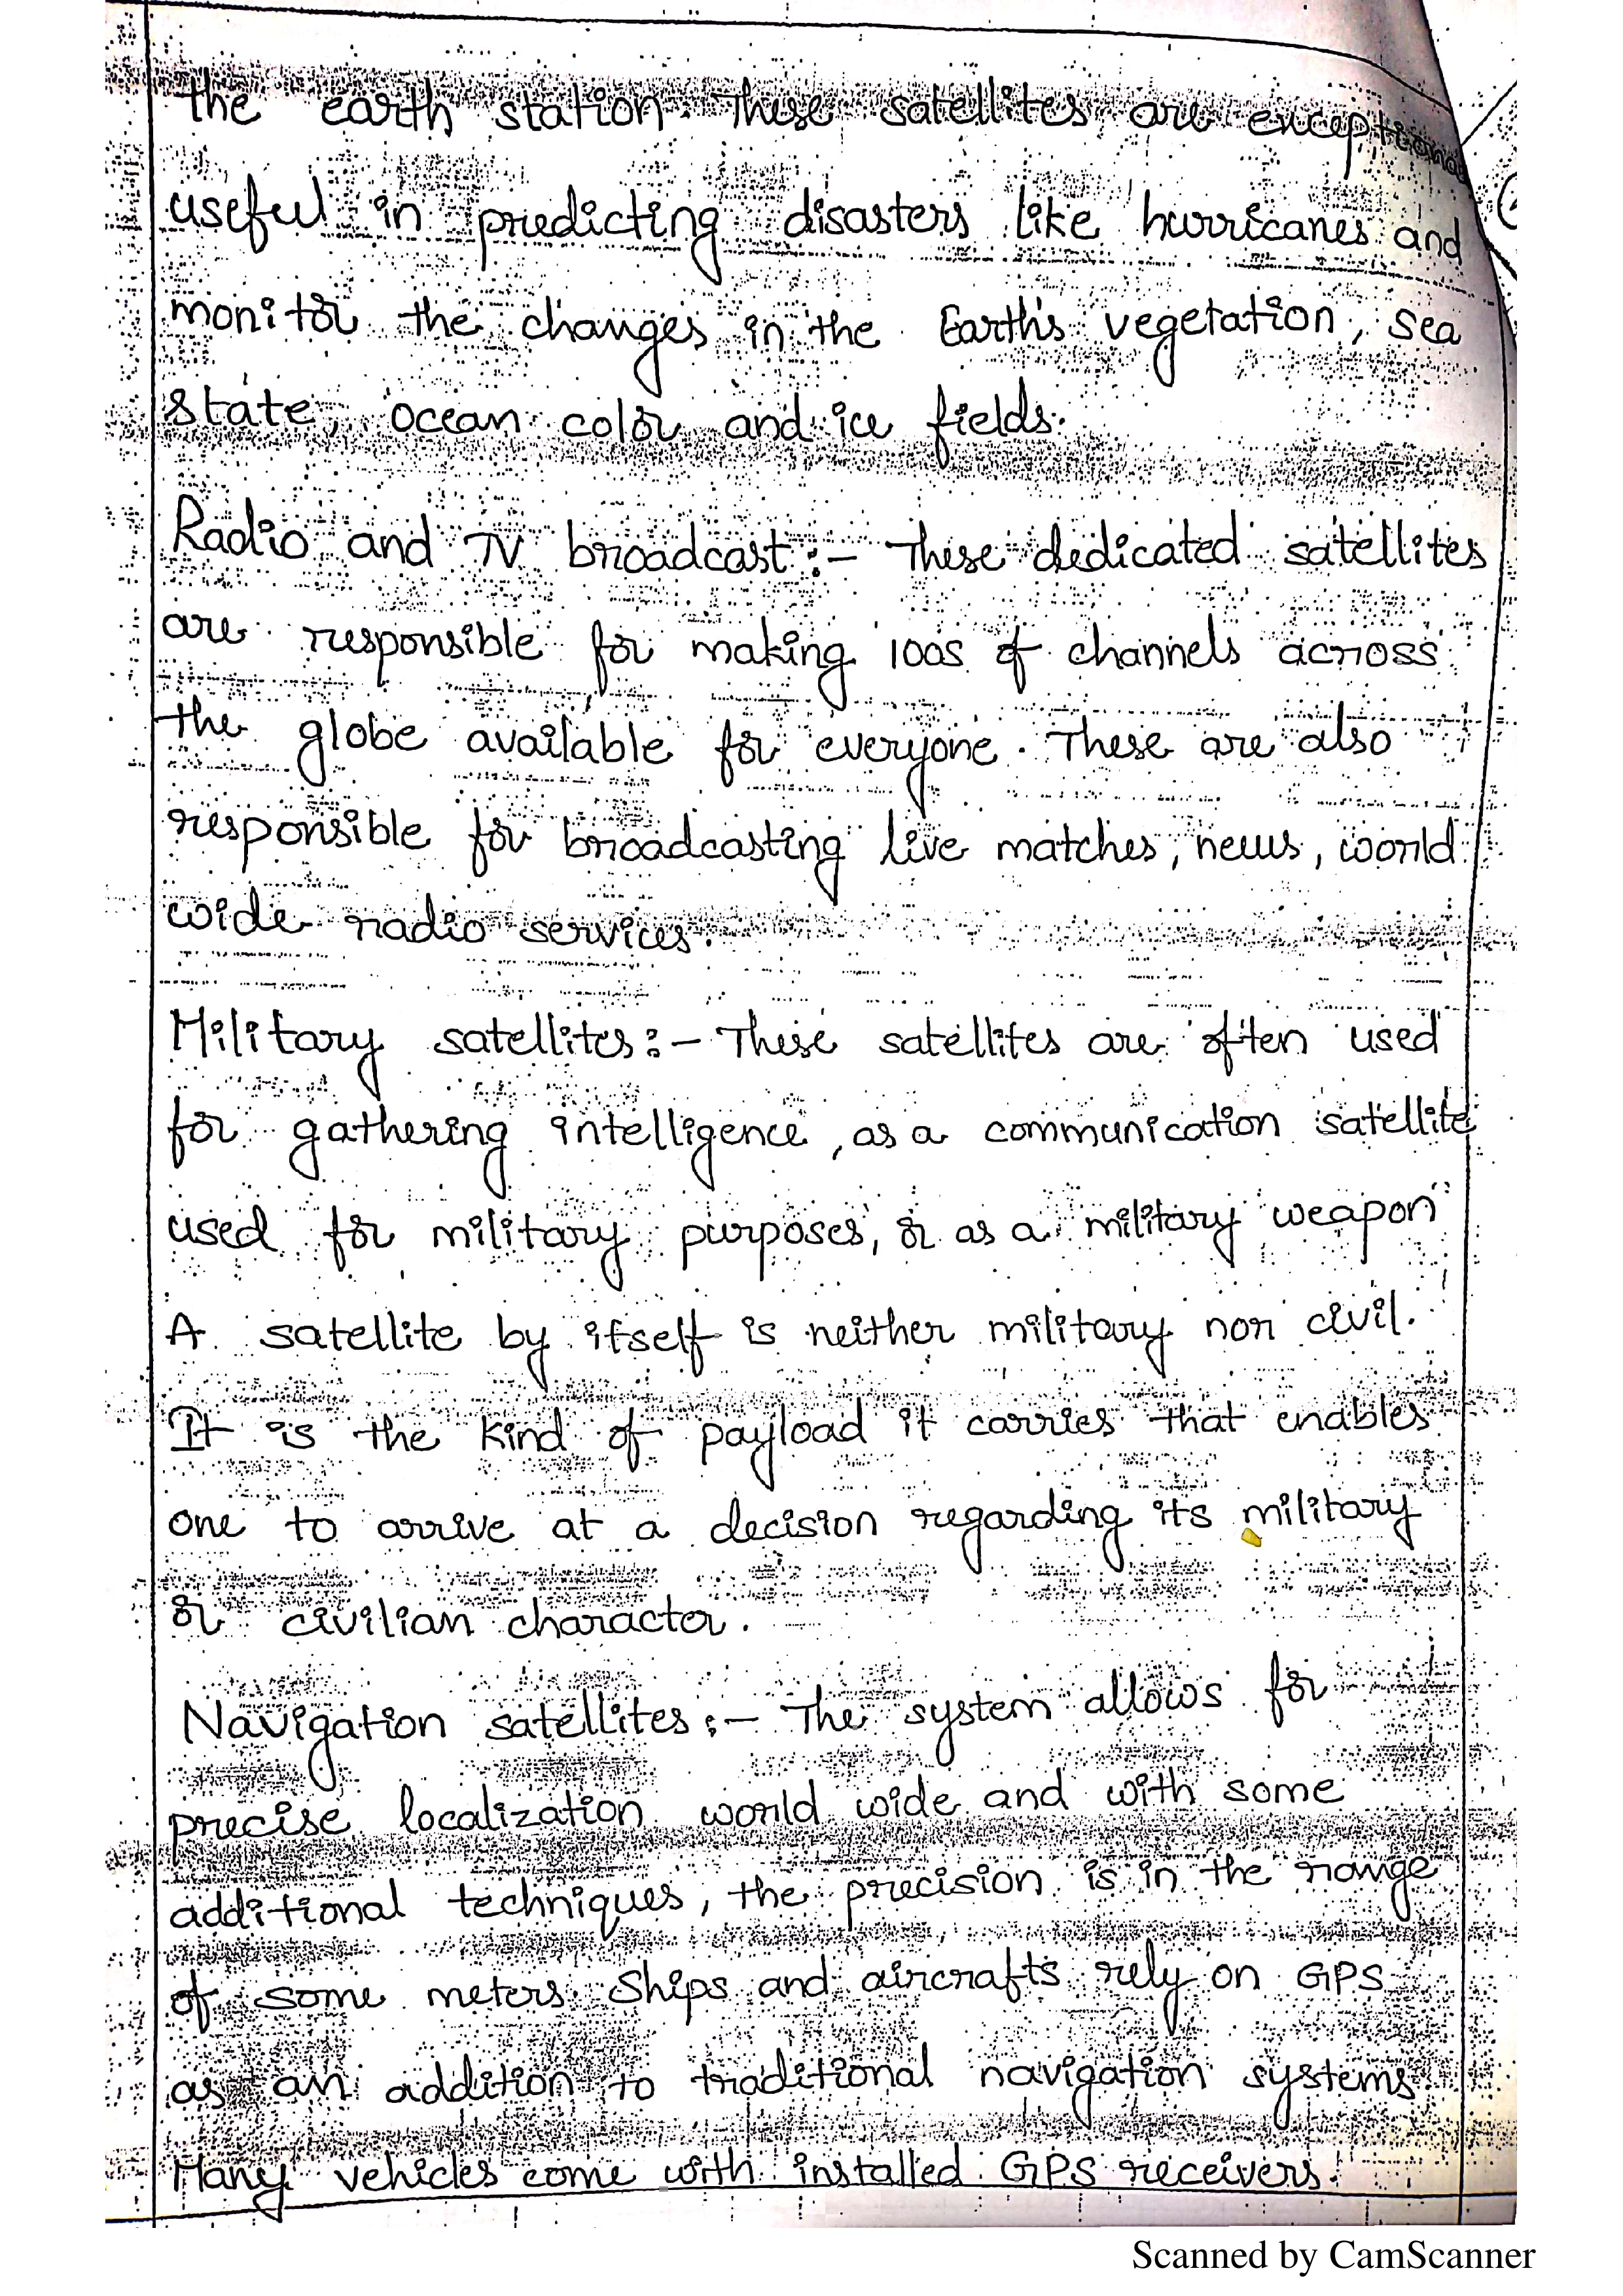 the earth station. These satellites are exceptional
useful in predicting disasters like hurricanes and
monitor the changes in the Earth's vegetation, sea
state, ocean color and ice fields.
Radio and TV broadcast :- These dedicated satellites
are responsible for making 100s of channels across
the globe available for everyone. These are also
responsible for broadcasting live matches, news, world
wide radio services.
Military satellites :- These satellites are often used
for gathering intelligence, as a communication satellite
used for military purposes, or as a military weapon
A satellite by itself is neither military nor civil.
It is the kind of payload it carries that enables
one to arrive at a decision regarding its military
or civilian character.
Navigation satellites :- The system allows for
precise localization world wide and with some
additional techniques, the precision is in the range
of some meters. Ships and aircrafts rely on GPS
as an addition to traditional navigation systems.
Many vehicles come with installed GPS receivers.
Scanned by CamScanner